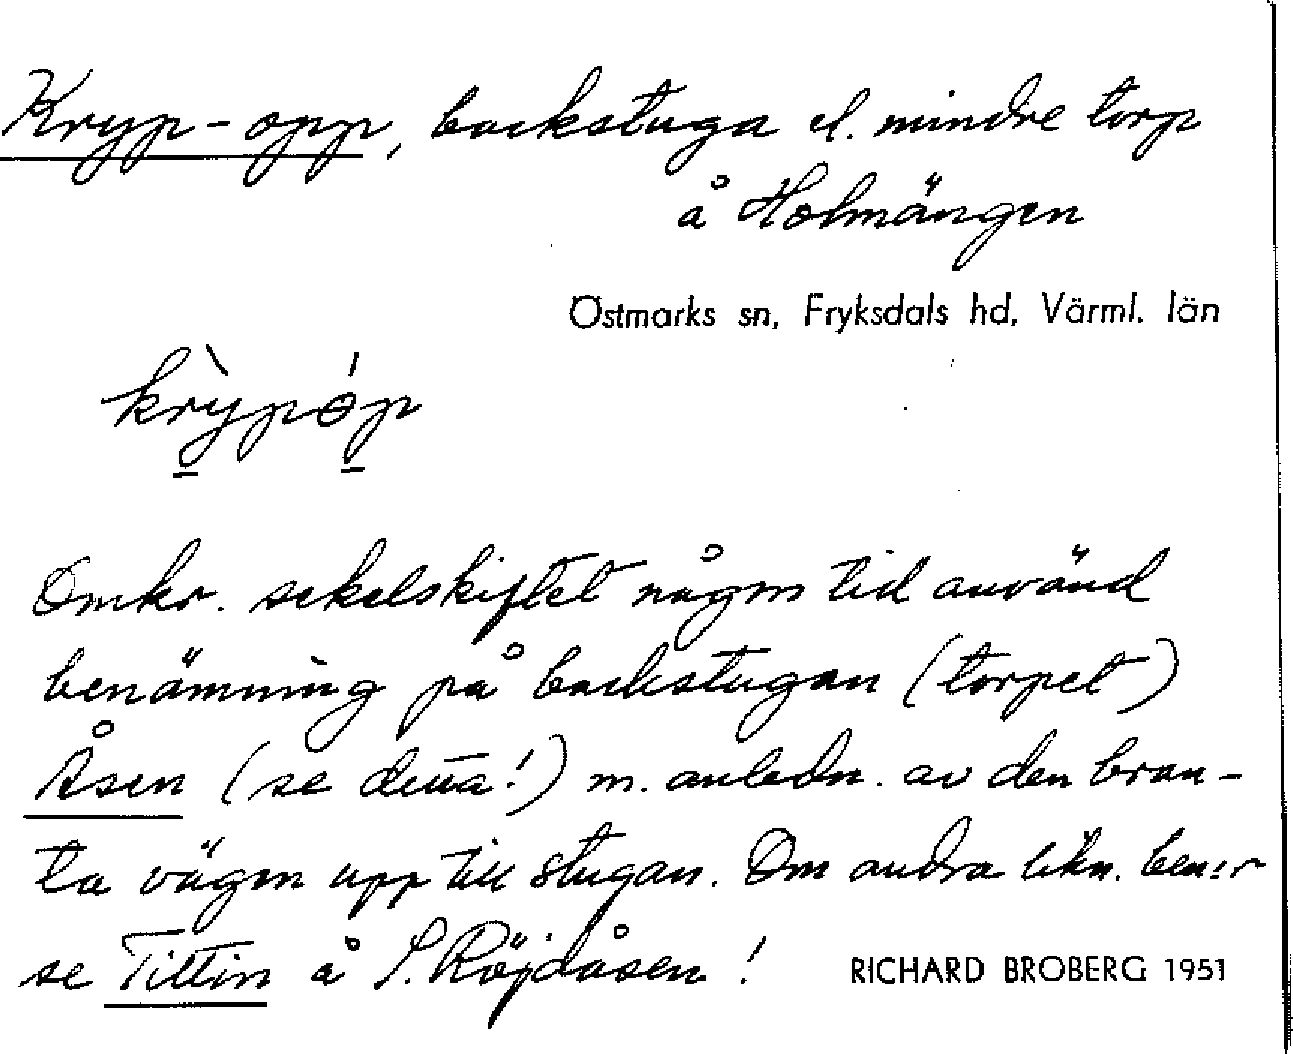 Kryp-opp, backstuga el. mindre torp
å Holmängen
Östmarks sn, Fryksdals hd, Värml. län
krỳpóp
Omkr. sekelskiftet någon tid använd
benämning på backstugan (torpet)
Åsen (se detta!) m. anledn. av den bran-
ta vägen upp till stugan. Om andra likn. ben:r
se Tittin å S. Röjdåsen!
RICHARD BROBERG 1951